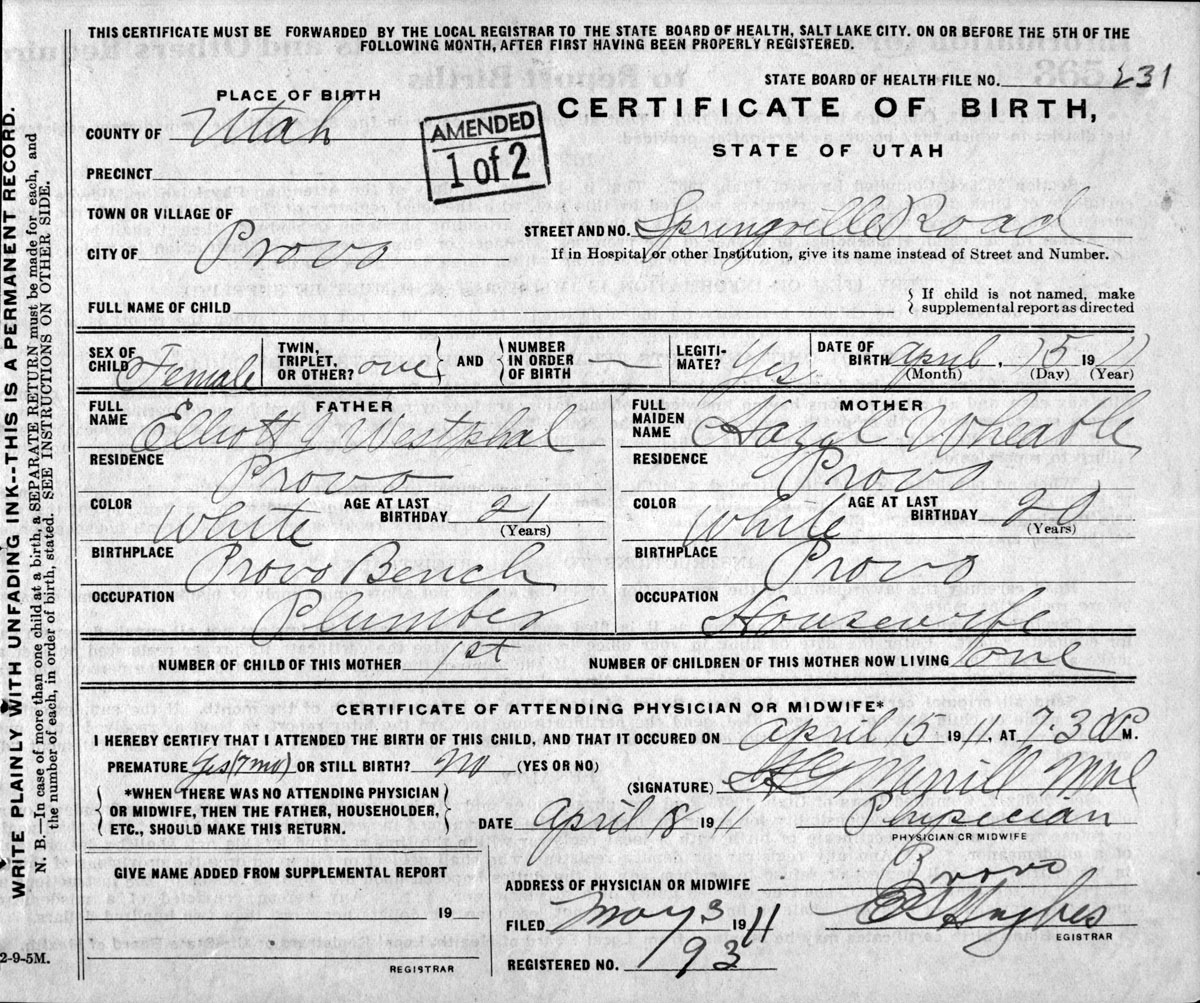 THIS CERTIFICATE MUST BE FORWARDED BY THE LOCAL REGISTRAR TO THE STATE BOARD OF HEALTH, SALT LAKE CITY. ON OR BEFORE THE 5TH OF THE
FOLLOWING MONTH, AFTER FIRST HAVING BEEN PROPERLY REGISTERED.
STATE BOARD OF HEALTH FILE NO. 231
PLACE OF BIRTH
CERTIFICATE OF BIRTH,
STATE OF UTAH
COUNTY OF Utah
AMENDED
1 of 2
PRECINCT
TOWN OR VILLAGE OF
STREET AND NO. Springville Road
CITY OF Provo
If in Hospital or other Institution, give its name instead of Street and Number.
FULL NAME OF CHILD
If child is not named, make
supplemental report as directed
SEX OF
CHILD Female
TWIN,
TRIPLET,
OR OTHER? one
AND
NUMBER
IN ORDER
OF BIRTH —
LEGITI-
MATE? Yes
DATE OF
BIRTH April, 15 1911
(Month) (Day) (Year)
FATHER
FULL
NAME Elliott J Westphal
RESIDENCE Provo
COLOR White
AGE AT LAST
BIRTHDAY 21
(Years)
BIRTHPLACE Provo Bench
OCCUPATION Plumber
MOTHER
FULL
MAIDEN
NAME Hazel Wheable
RESIDENCE Provo
COLOR White
AGE AT LAST
BIRTHDAY 20
(Years)
BIRTHPLACE Provo
OCCUPATION Housewife
NUMBER OF CHILD OF THIS MOTHER 1st NUMBER OF CHILDREN OF THIS MOTHER NOW LIVING one
CERTIFICATE OF ATTENDING PHYSICIAN OR MIDWIFE*
I HEREBY CERTIFY THAT I ATTENDED THE BIRTH OF THIS CHILD, AND THAT IT OCCURED ON April 15 1911, AT 7:30 P M.
PREMATURE Yes (7 mo) OR STILL BIRTH? No (YES OR NO)
(SIGNATURE) Merrill
*WHEN THERE WAS NO ATTENDING PHYSICIAN
OR MIDWIFE, THEN THE FATHER, HOUSEHOLDER,
ETC., SHOULD MAKE THIS RETURN.
DATE April 18 1911
Physician
PHYSICIAN OR MIDWIFE
GIVE NAME ADDED FROM SUPPLEMENTAL REPORT
19
REGISTRAR
ADDRESS OF PHYSICIAN OR MIDWIFE Provo
FILED May 3 1911
Hughes
EGISTRAR
REGISTERED NO. 93
2-9-5M.
WRITE PLAINLY WITH UNFADING INK--THIS IS A PERMANENT RECORD.
N. B.—In case of more than one child at a birth, a SEPARATE RETURN must be made for each, and
the number of each, in order of birth, stated. SEE INSTRUCTIONS ON OTHER SIDE.